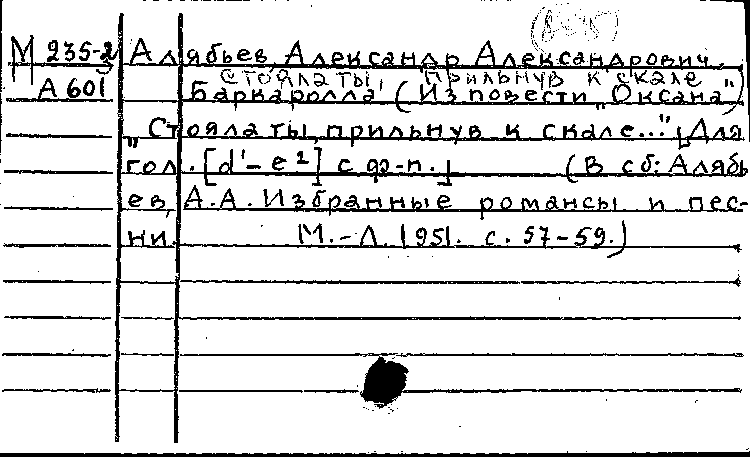 М 235-2 Алябьев, Александр Александрович.
Стояла ты, прильнув к скале
А 601 Баркаролла, (Из повести „Оксана")
„Стояла ты, прильнув к скале..." [Для
гол. [d'-e²] с ф-п.] (В сб: Алябь
ев, А.А. Избранные романсы и пес-
ни. М.-Л. 1951. с. 57-59.)